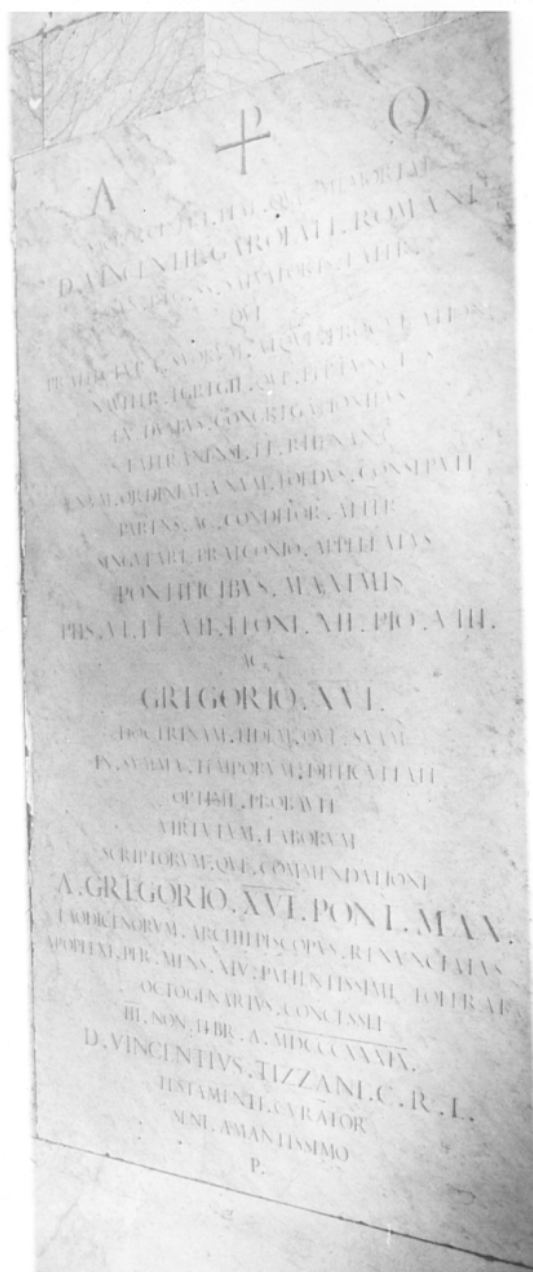 Α ⳩ Ω
MEMORIAE
D. VINCENTII. GAROFALI. ROMANI
SALVATORIS. LATER.
QVI
ATQVE. PROCVRATIONE
NAVITER. EGREGIE. QVE. PERFVNCTVS
EX. DVABVS. CONGREGATIONIBVS
LATERANENSI. ET. RHENANA
VNVM. ORDINEM. VNVM. FOEDVS. CONSERVIT
PARENS. AC. CONDITOR. ALTER
SINGVLARI. PRAECONIO. APPELLATVS
PONTIFICIBVS. MAXIMIS
PIIS. VI. ET. VII. LEONI. XII. PIO. VIII.
AC.
GREGORIO. XVI.
DOCTRINAM. FIDEM. QVE. SVAM
IN. SVMMA. TEMPORVM. DIFFICVLTATE
OPTIME. PROBAVIT
VIRTVTVM. LABORVM
SCRIPTORVM. QVE. COMMENDATIONE
A. GREGORIO. XVI. PONT. MAX.
LAODICENORVM. ARCHIEPISCOPVS. RENVNCIATVS
APOPLEXI. PER. MENS. XIV. PATIENTISSIME
OCTOGENARIVS. CONCESSIT
III. NON. FEBR. A. MDCCCXXXIX.
D. VINCENTIVS. TIZZANI. C. R. L.
TESTAMENTI. CVRATOR
SENI. AMANTISSIMO
P.